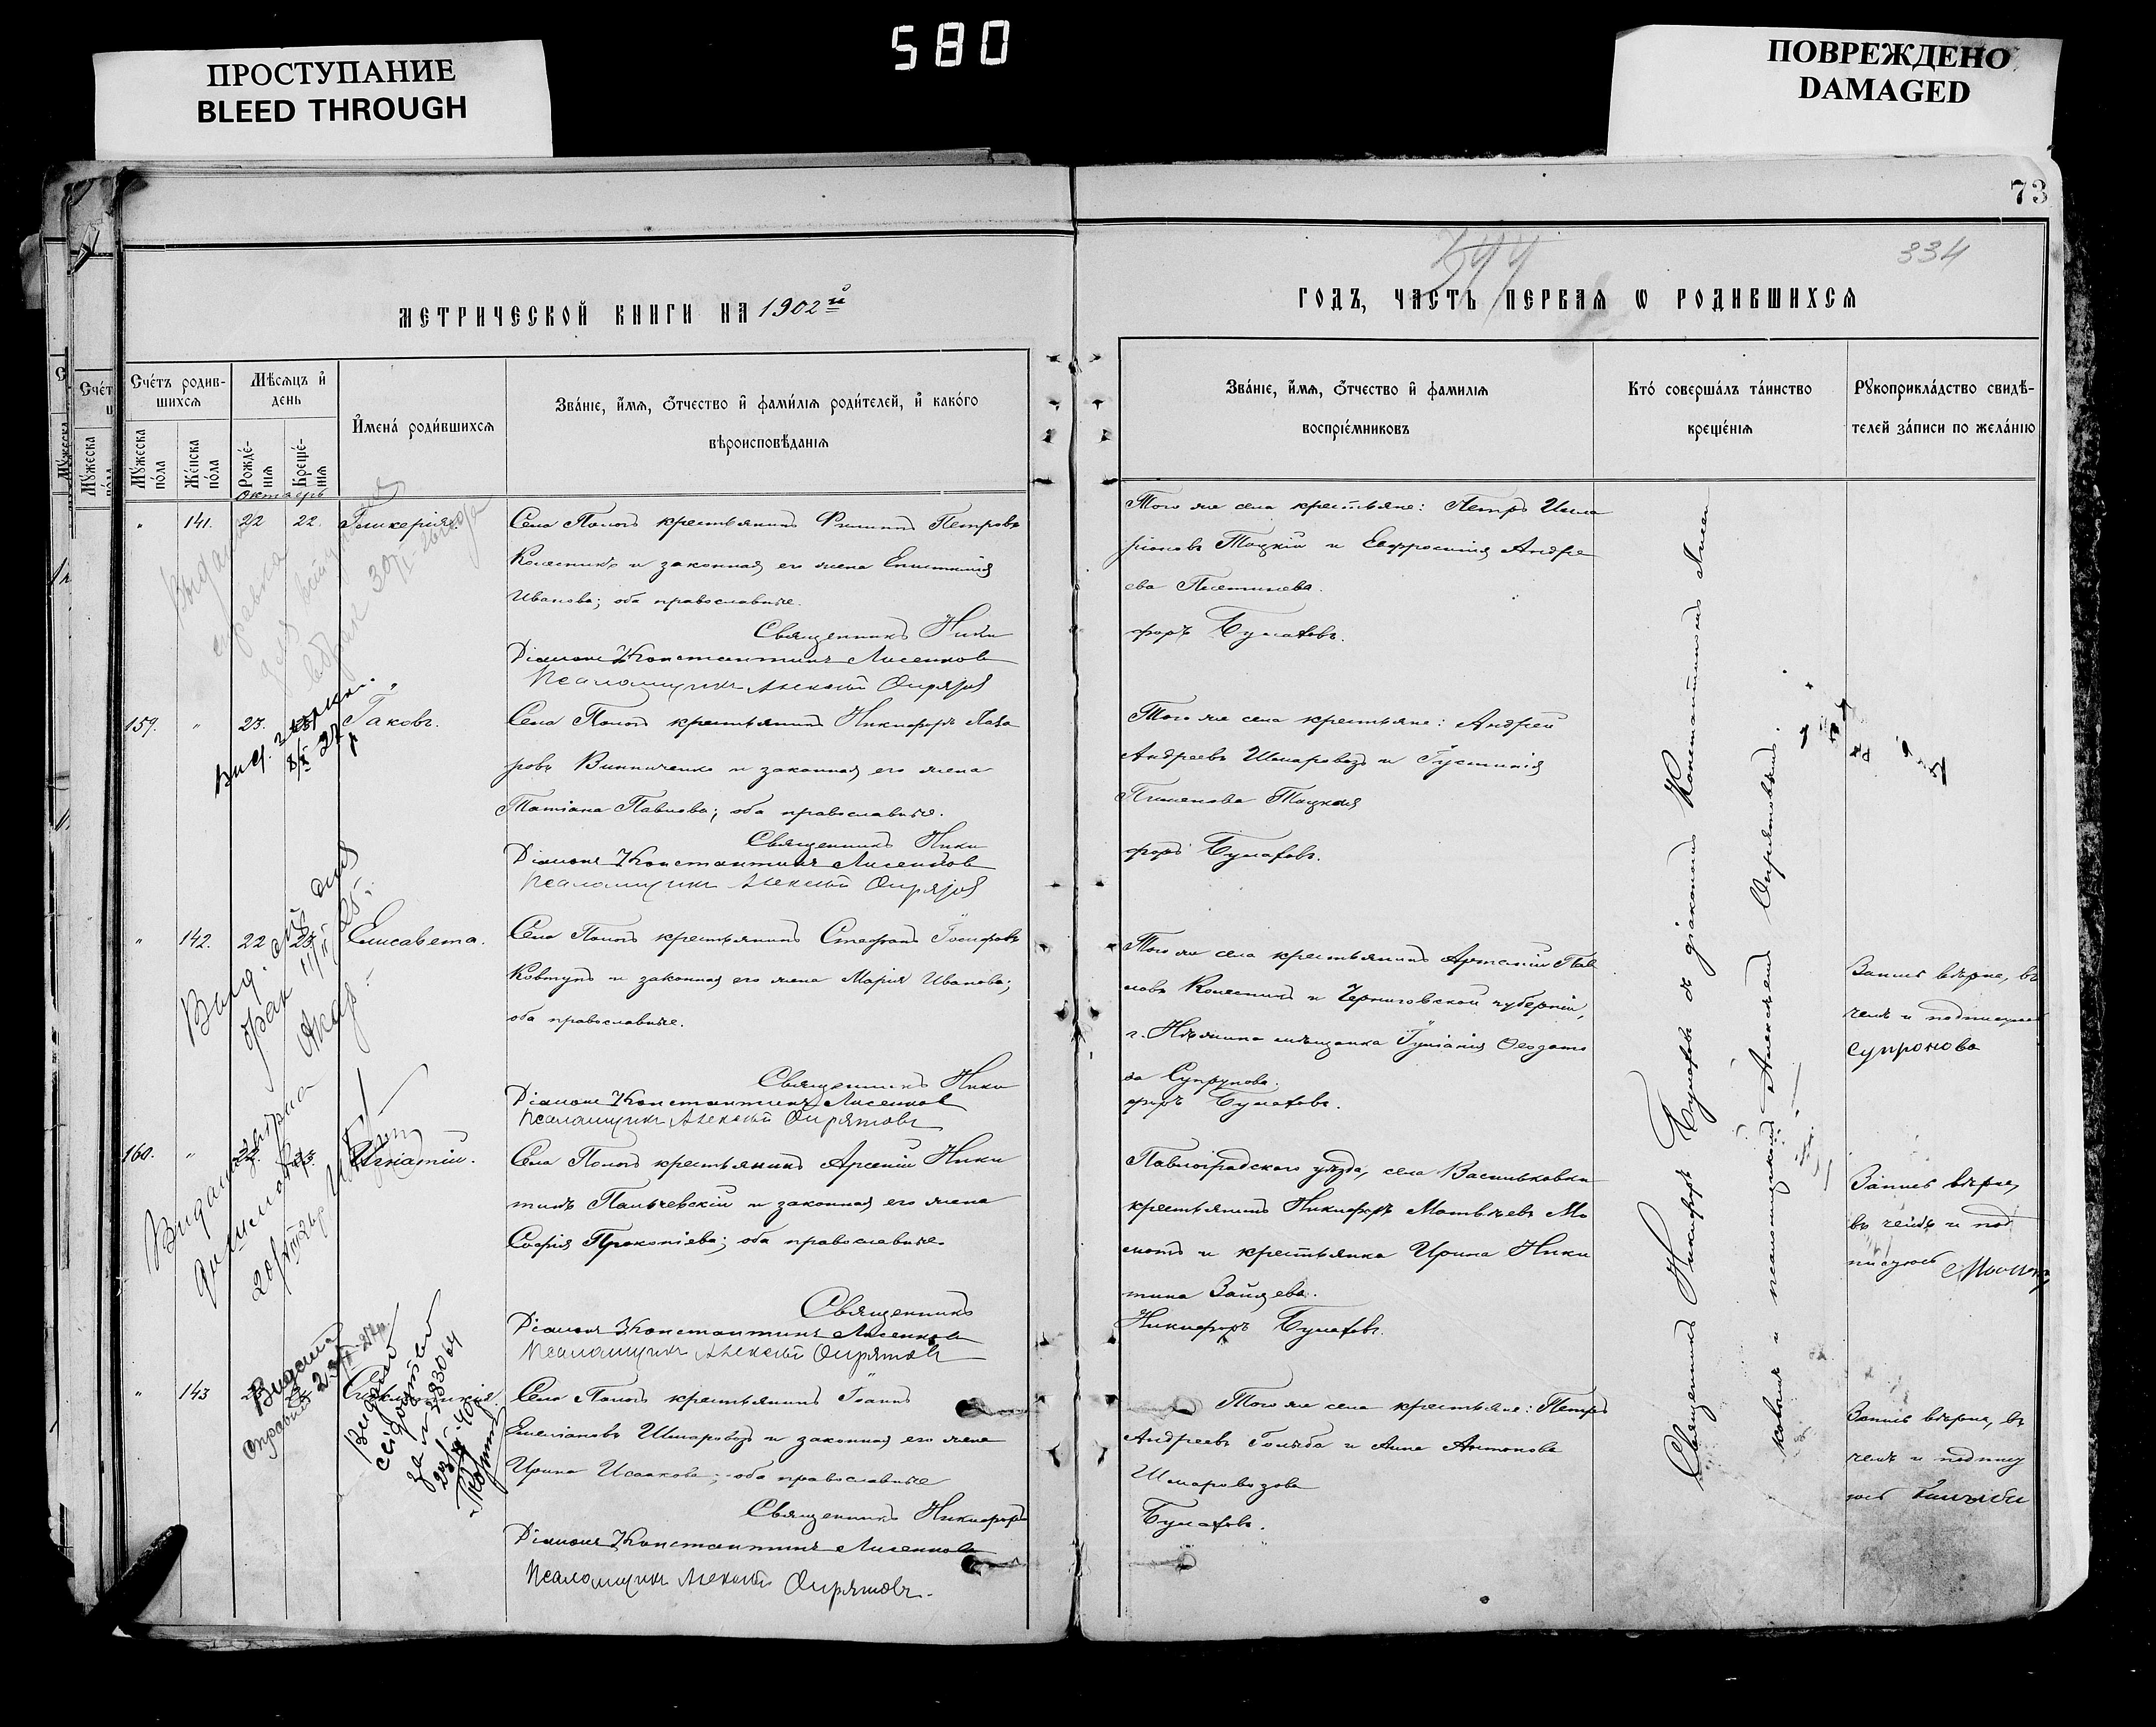 ПРОСТУПАНИЕ
BLEED THROUGH
580
ПОВРЕЖДЕНО
DAMAGED
73
334
МЕТРИЧЕСКОЙ КНИГИ НА 1902й
ГОДЪ, ЧАСТЬ ПЕРВАЯ Ѡ РОДИВШИХСЯ
Счетъ родив-
шихся
Мѣсяцъ и
день
Мужеска
пола
Женска
пола
Рожде-
нія
Креще-
нія
Имена родившихся
Званіе, имя, отчество и фамилія родителей, и какого
вѣроисповѣданія
Званіе, имя, отчество и фамилія
воспріемниковъ
Кто совершалъ таинство
крещенія
Рукоприкладство свидѣ-
телей записи по желанію
октябрь
" 141. 22 22. Гликерія. Села Пологъ крестьянинъ Филиппъ Петровъ
Колесникъ и законная его жена Епистимія
Иванова; оба православные.
Священникъ Ники
Діаконъ Константинъ Лисенковъ
Псаломщикъ Алексѣй Опрятовъ
Того же села крестьяне: Петръ Илла
ріоновъ Тоцкій и Евфросинія Андре
ева
форъ Булатовъ.
159. " 23. 23. Іаковъ. Села Пологъ крестьянинъ Никифоръ Лаза
ровъ Винниченко и законная его жена
Татіана Павлова; оба православные.
Священникъ Ники
Діаконъ Константинъ Лисенковъ
Псаломщикъ Алексѣй Опрятовъ
Того же села крестьяне: Андрей
Андреевъ Шмаровозъ и Іустинія
Пименова Тоцкая
форъ Булатовъ.
" 142. 22 23. Елисавета. Села Пологъ крестьянинъ Стефанъ Іосифовъ
Ковтунъ и законная его жена Марія Иванова;
оба православные.
Священникъ Ники
Діаконъ Константинъ Лисенковъ
Псаломщикъ Алексѣй Опрятовъ
Того же села крестьянинъ Пав
ловъ Колесникъ и Черниговской губерніи,
г. Нѣжина мѣщанка Іуліанія Ѳеодото
ва Супрунова.
форъ Булатовъ.
Запись вѣрна, въ
чемъ и подписуюсь
Супронова
160. " 22. 23. Игнатій. Села Пологъ крестьянинъ Арсеній Ники
тинъ Пальчевскій и законная его жена
Софія Прокопіева; оба православные.
Священникъ
Діаконъ Константинъ Лисенковъ
Псаломщикъ Алексѣй Опрятовъ
Павлоградскаго уѣзда, села Васильковки
крестьянинъ Никифоръ Матвѣевъ Мо
лотъ и крестьянка Ирина Ники
тина Зайцева.
Никифоръ Булатовъ.
Запись вѣрна,
въ чемъ и под
писуюсь
" 143 23. Села Пологъ крестьянинъ Іоаннъ
Емеліановъ Шмаровозъ и законная его жена
Ирина Исаакова; оба православные
Священникъ Никифоръ
Діаконъ Константинъ Лисенковъ
Псаломщикъ Алексѣй Опрятовъ.
Того же села крестьяне: Петръ
Андреевъ Голуба и Анна Антонова
Шмаровозова
Булатовъ.
Запись вѣрна, въ
чемъ и подпису
юсь
Священникъ Никифоръ Булатовъ съ діакономъ Константиномъ Лисен
ковымъ и псаломщикомъ Алексѣемъ Опрятовымъ.